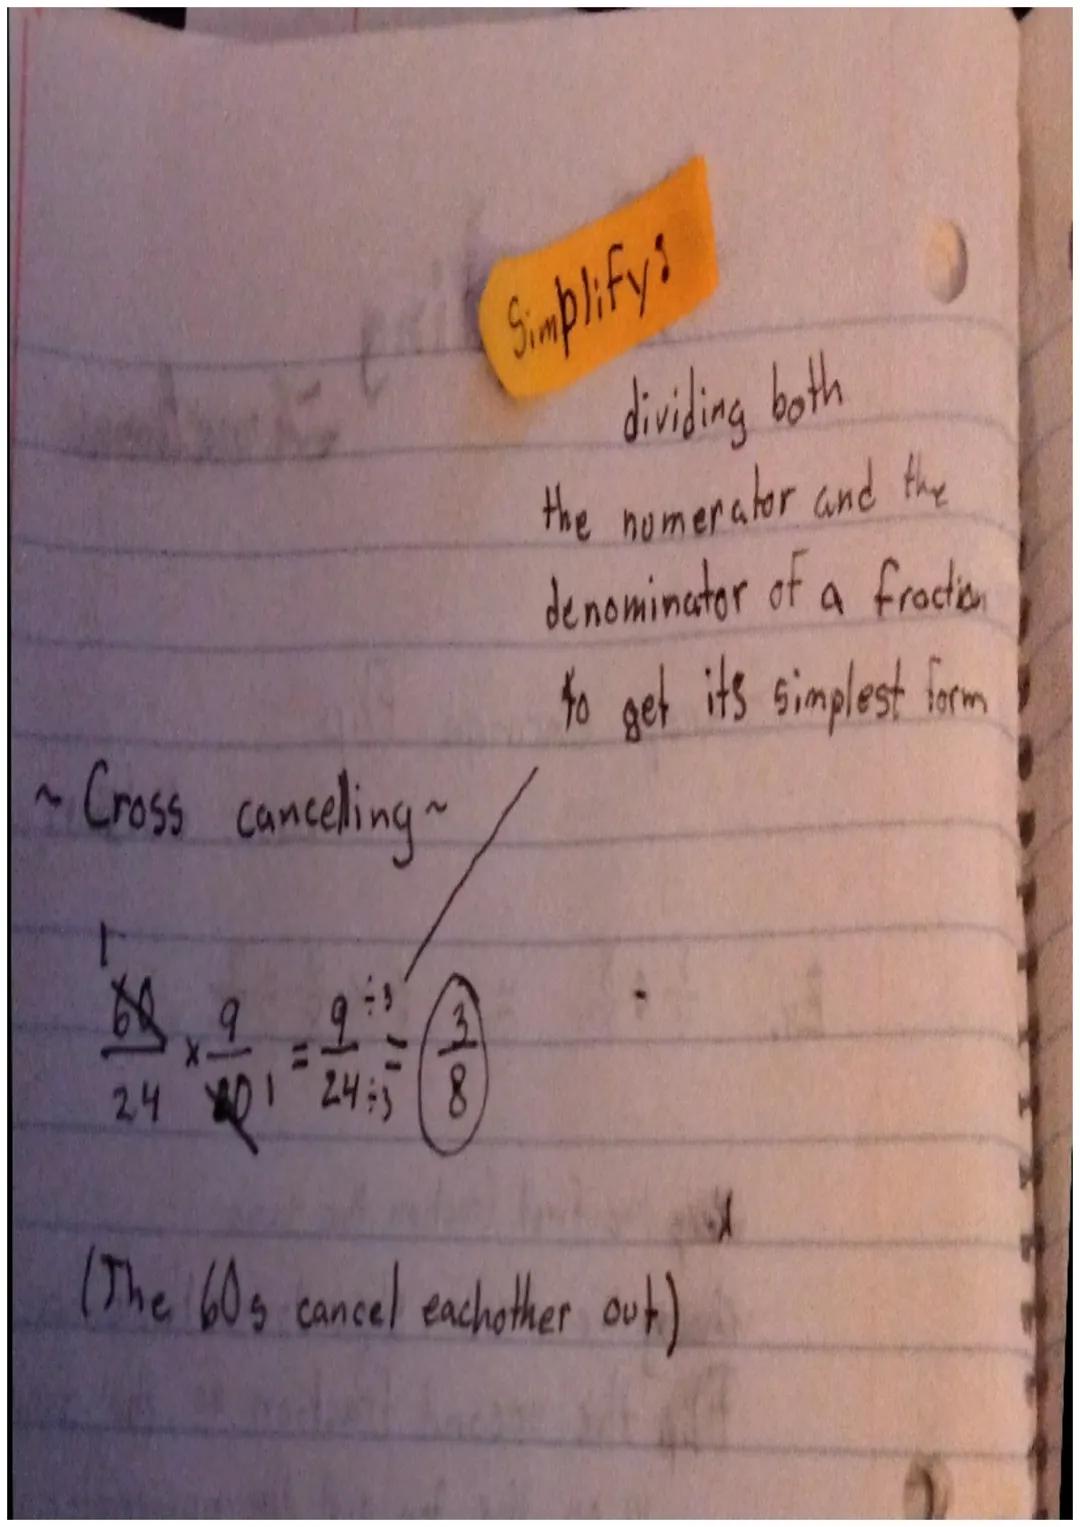 Simplify:
dividing both
the numerator and the
denominator of a fraction
to get its simplest form
~ Cross cancelling ~
1
60/24 × 9/60 1 = 9÷3/24÷3 = 3/8
(The 60s cancel eachother out)